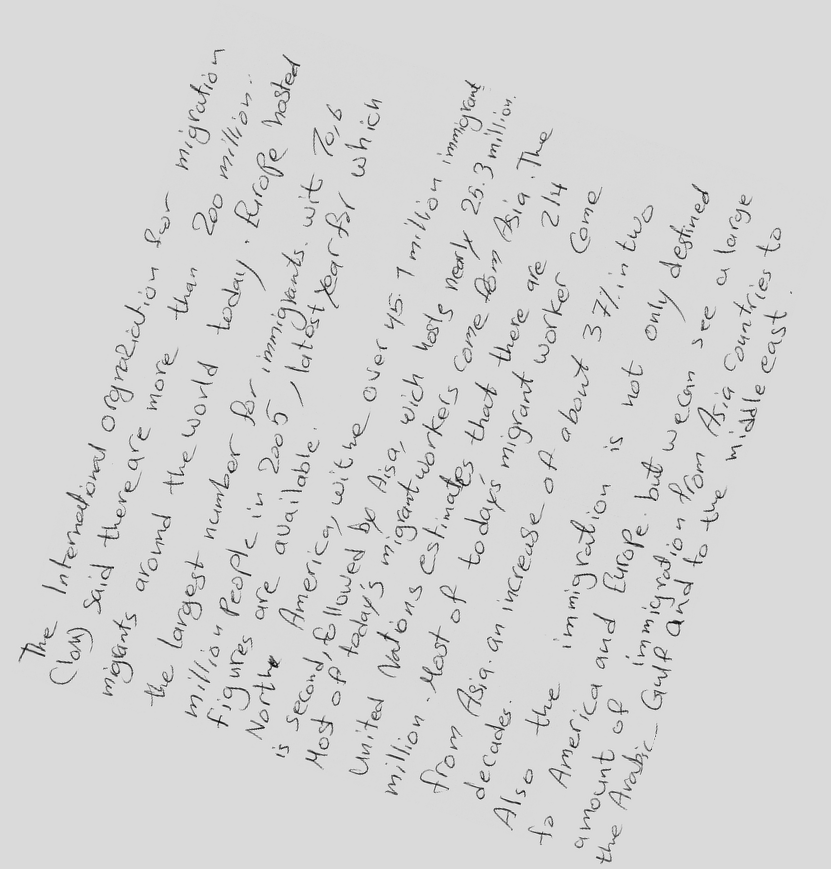 The International orgnaziation for migration
(IOM) said there are more than 200 million..
migrants around the world today. Europe hosted
the largest number for immigrants. wit 70,6
million people in 2005, latest year for which
figures are available.
North America, withe over 45.1 million immigrant
is second, followed by Aisa, wich hosts nearly 25.3 million.
Most of today's migrant workers come from Asia. The
United Nations estimates that there are 214
million. Most of today's migrant worker come
from Asia. an increase of about 37% in two
decades.
Also the immigration is not only destined
to America and Europe. but we can see a large
amount of immigration from Asia countries to
the Arabic Gulf and to the middle east.